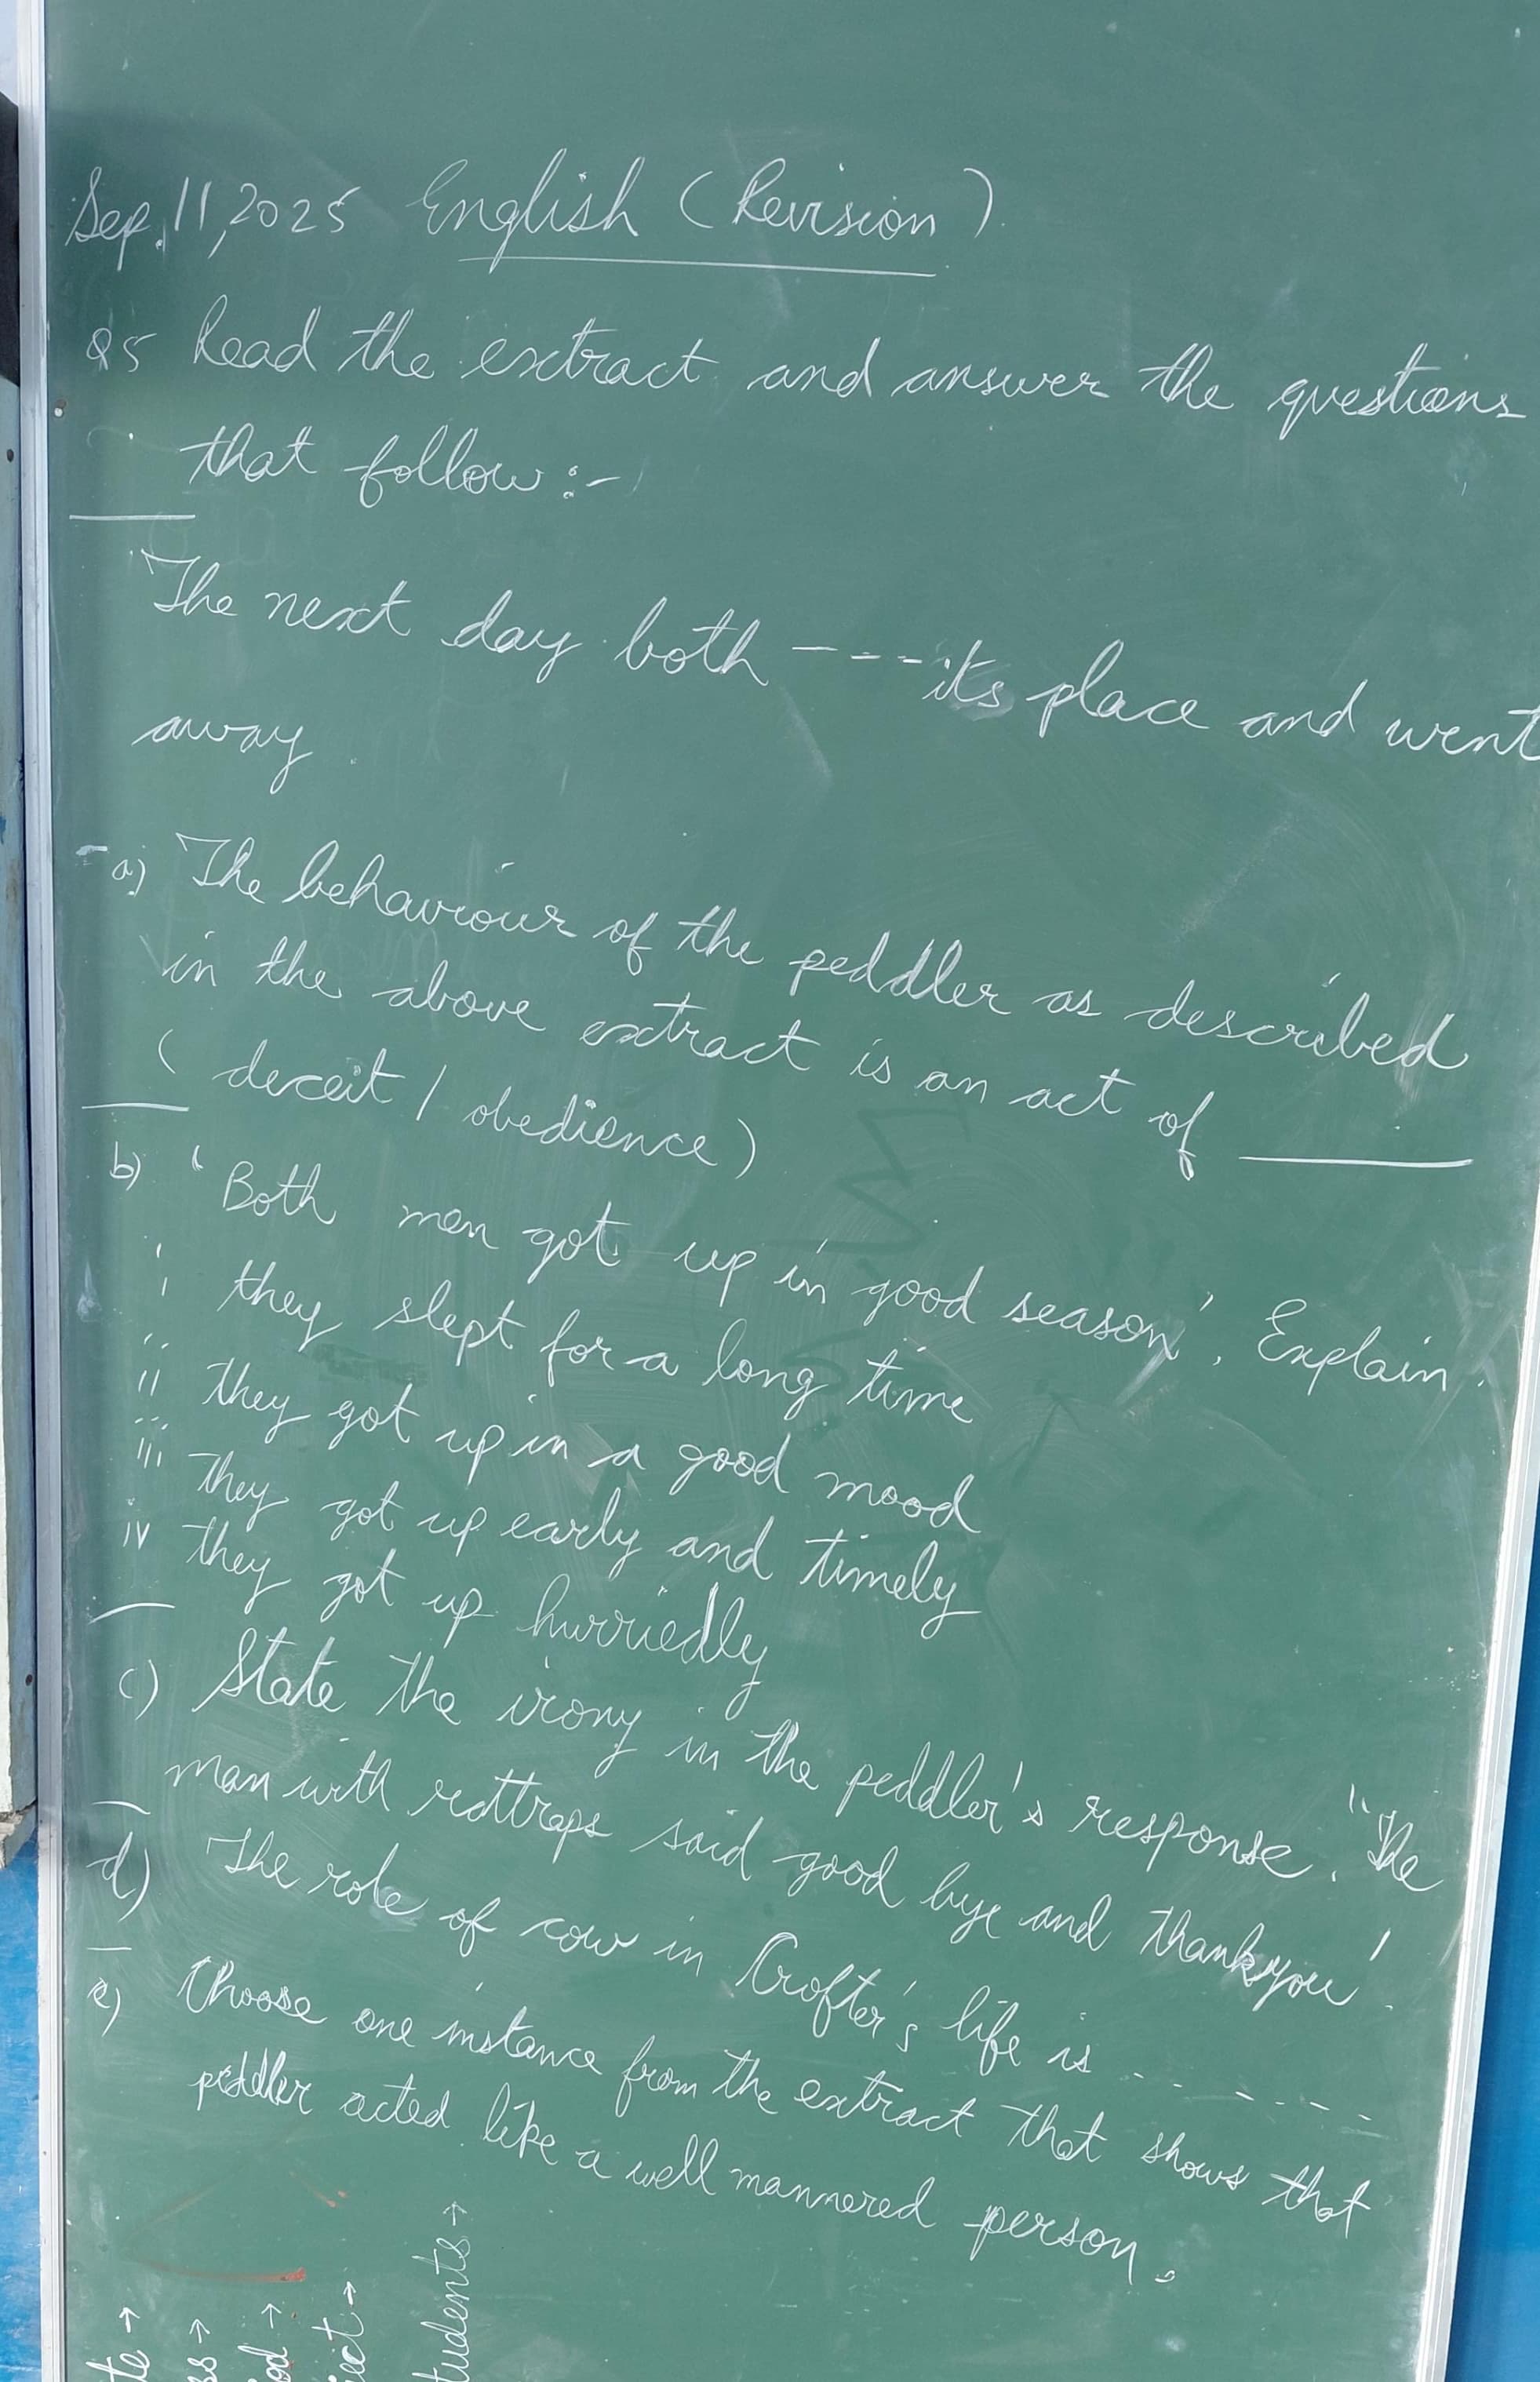 Sep. 11, 2025 English (Revision)
Q5 Read the extract and answer the questions
that follow :-
The next day both ---- its place and went
away.
a) The behaviour of the peddler as described
in the above extract is an act of ______
( deceit / obedience )
b) 'Both men got up in good season'. Explain.
i they slept for a long time
ii they got up in a good mood
iii They got up early and timely
iv they got up hurriedly
c) State the irony in the peddler's response. "The
man with rattraps said good bye and thankyou'.
d) The role of cow in Crofter's life is ------
e) Choose one instance from the extract that shows that
peddler acted like a well mannered person.